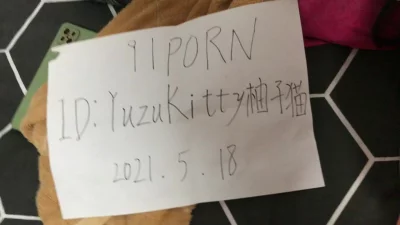 91PORN
ID:YuzuKitty柚子猫
2021.5.18